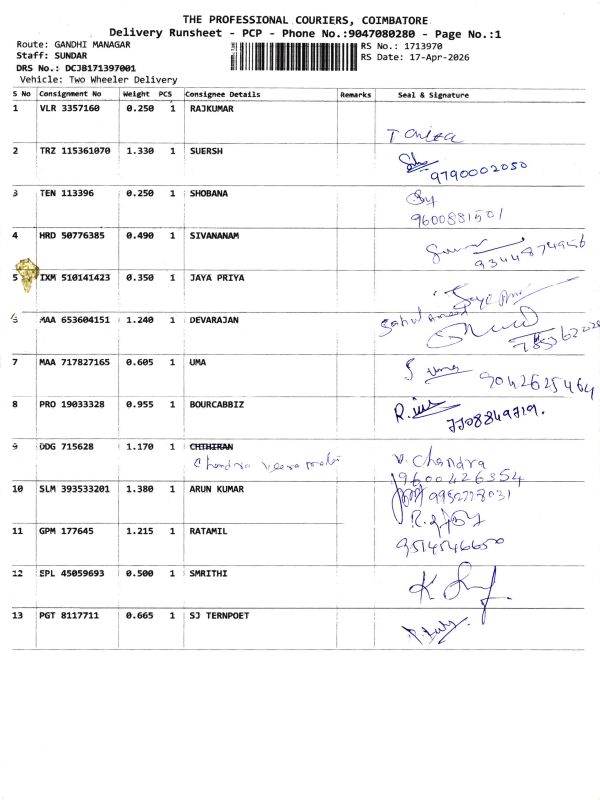 THE PROFESSIONAL COURIERS, COIMBATORE
Delivery Runsheet - PCP - Phone No.:9047080280 - Page No.:1
Route: GANDHI MANAGAR
RS No.: 1713970
Staff: SUNDAR
RS Date: 17-Apr-2026
DRS No.: DCJB171397001
Vehicle: Two Wheeler Delivery
S No Consignment No Weight PCS Consignee Details Remarks Seal & Signature
1 VLR 3357160 0.250 1 RAJKUMAR
2 TRZ 115361070 1.330 1 SUERSH
9790002050
3 TEN 113396 0.250 1 SHOBANA
9600881501
4 HRD 50776385 0.490 1 SIVANANAM
9344874956
5 IXM 510141423 0.350 1 JAYA PRIYA
6 MAA 653604151 1.240 1 DEVARAJAN
7 MAA 717827165 0.605 1 UMA
uma
9042625464
8 PRO 19033328 0.955 1 BOURCABBIZ
7708849719.
9 DDG 715628 1.170 1 CHTHIRAN
Chandra
V. Chandra
9600426354
10 SLM 393533201 1.380 1 ARUN KUMAR
9952778031
11 GPM 177645 1.215 1 RATAMIL
9514546650
12 EPL 45059693 0.500 1 SMRITHI
13 PGT 8117711 0.665 1 SJ TERNPOET